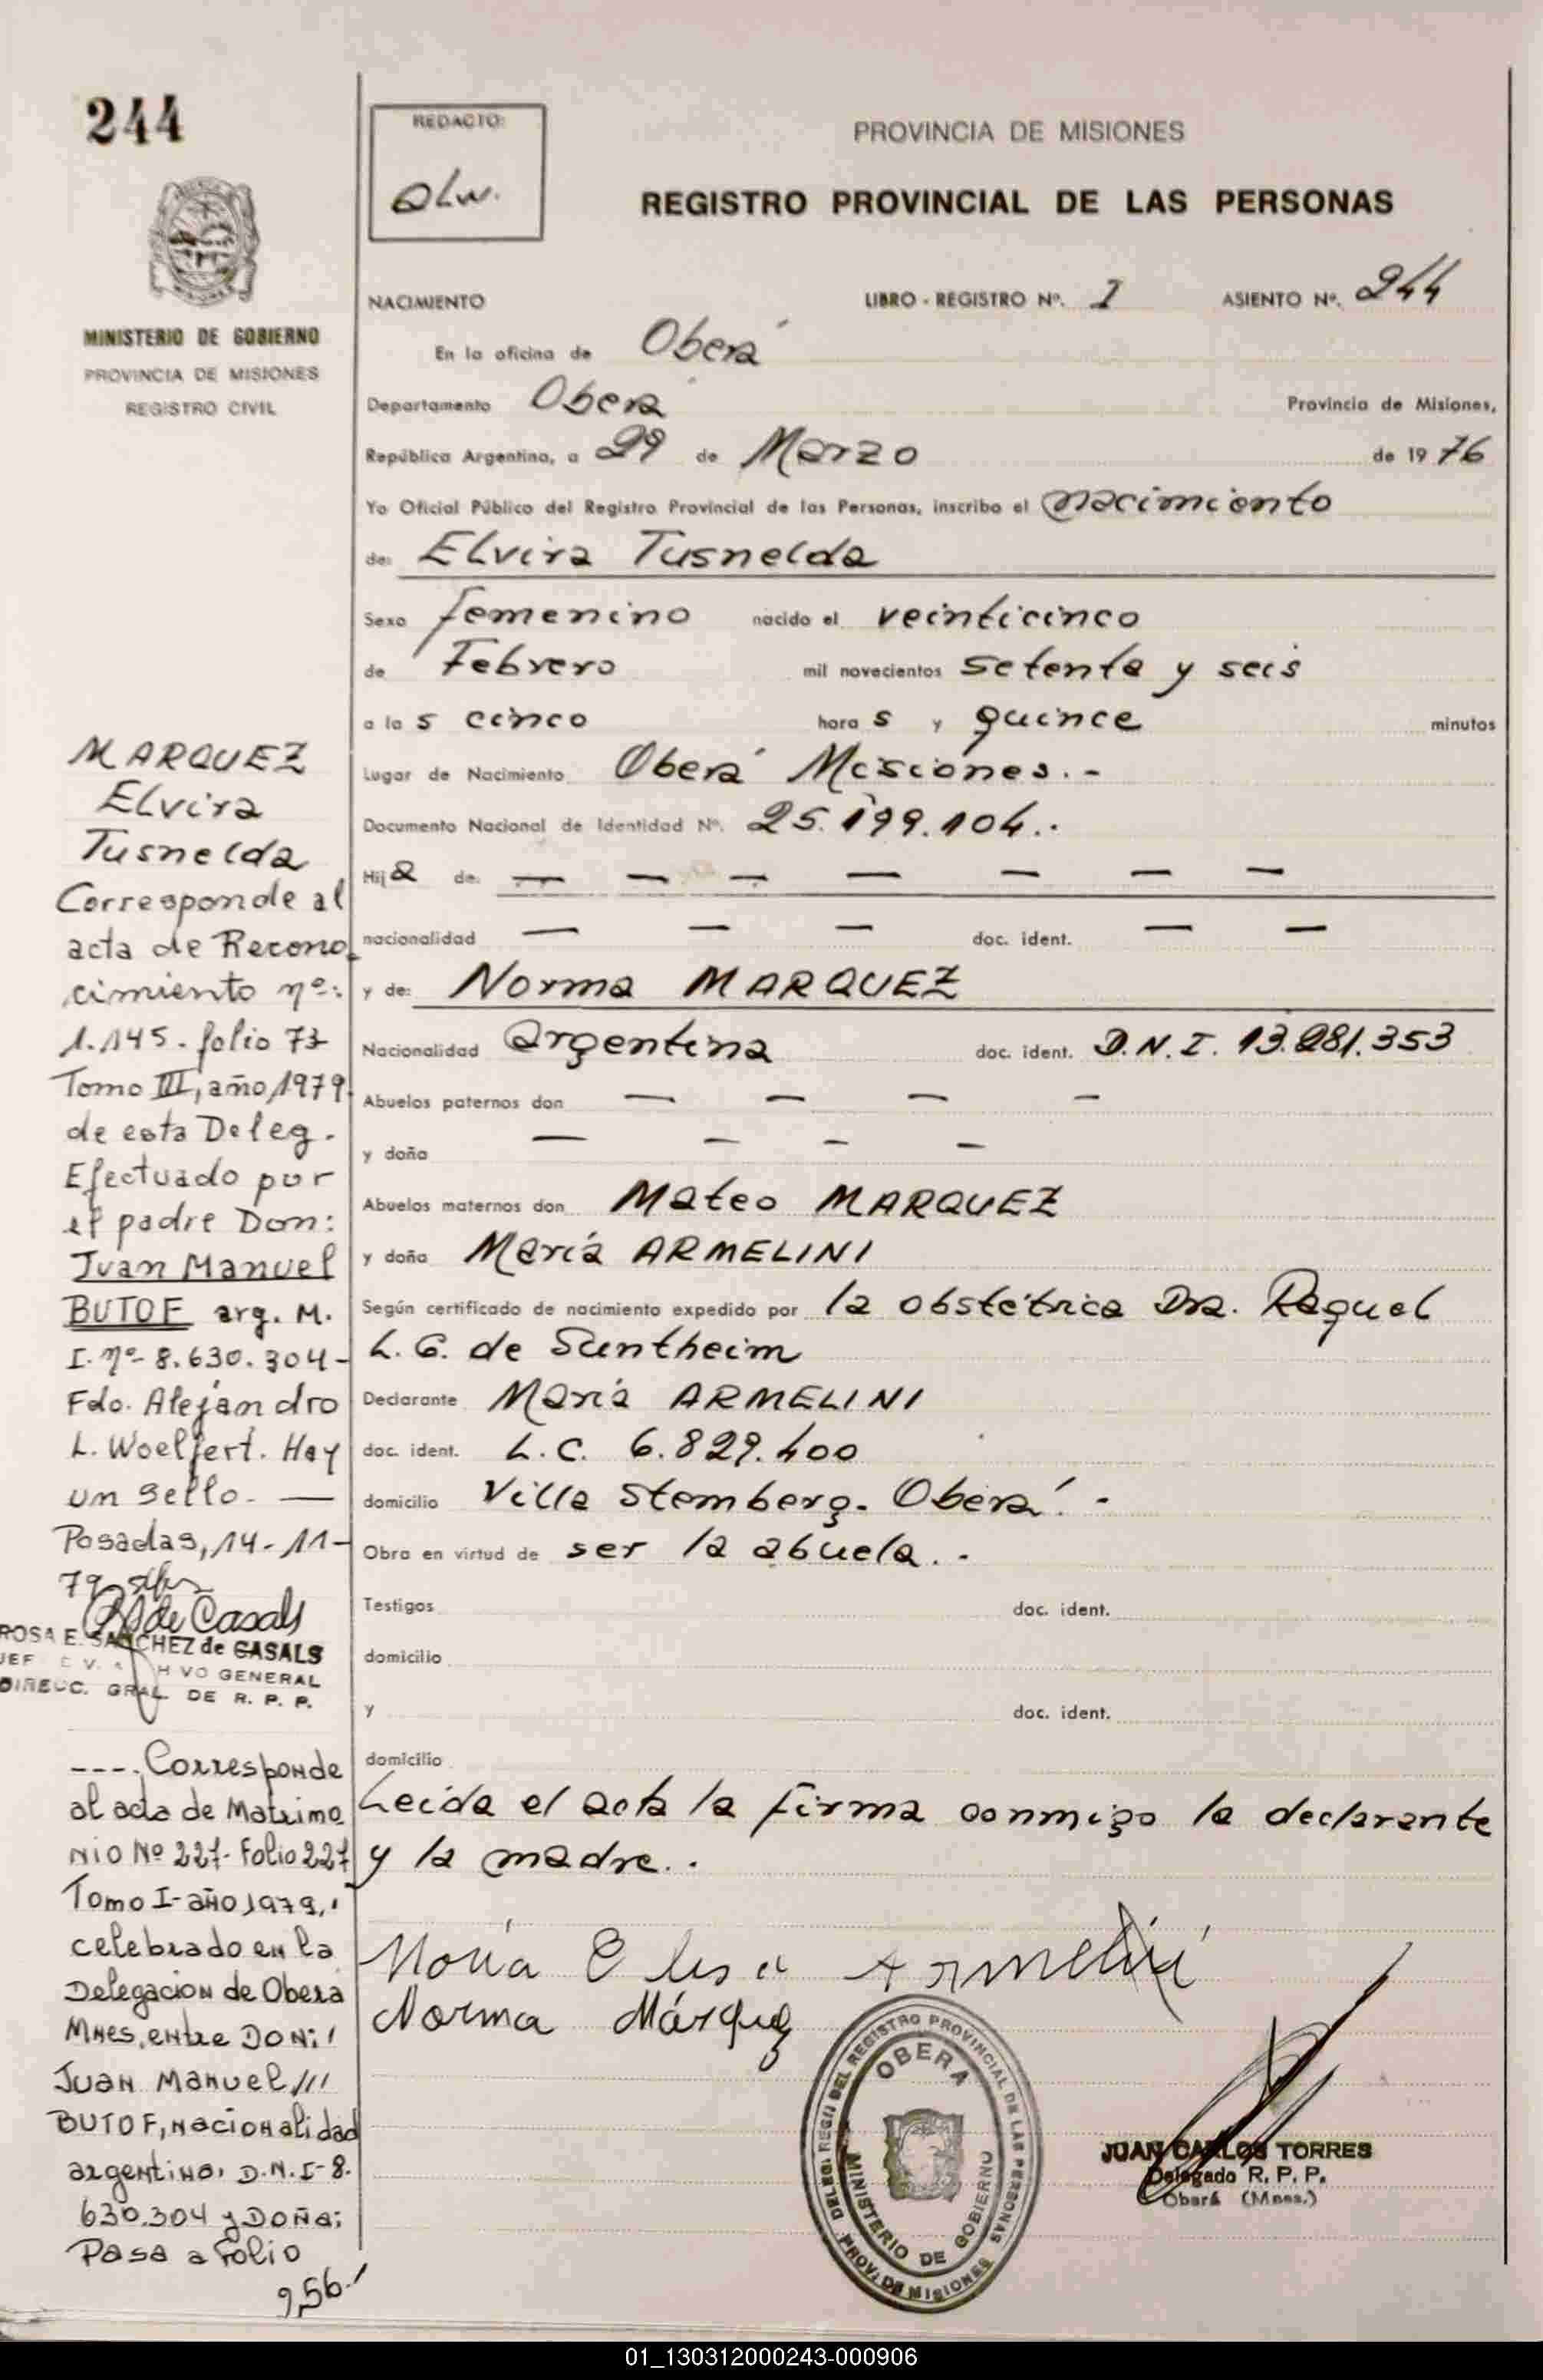 244
MINISTERIO DE GOBIERNO
PROVINCIA DE MISIONES
REGISTRO CIVIL
REDACTO:
PROVINCIA DE MISIONES
REGISTRO PROVINCIAL DE LAS PERSONAS
NACIMIENTO LIBRO - REGISTRO Nº. I ASIENTO Nº. 244
En la oficina de Oberá
Departamento Oberá Provincia de Misiones,
República Argentina, a 29 de Marzo de 1976
Yo Oficial Público del Registro Provincial de las Personas, inscribo el nacimiento
de: Elvira Tusnelda
Sexo femenino nacido el veinticinco
de Febrero mil novecientos setenta y seis
a la s cinco hora s y quince minutos
Lugar de Nacimiento Oberá Misiones.-
Documento Nacional de Identidad Nº. 25.199.104.-
Hij a de: — — — — — — —
nacionalidad — — — doc. ident. — —
y de: Norma MARQUEZ
Nacionalidad argentina doc. ident. D.N.I. 13.281.353
Abuelos paternos don — — — —
y doña — — — —
Abuelos maternos don Mateo MARQUEZ
y doña María ARMELINI
Según certificado de nacimiento expedido por la obstétrica Dra. Raquel
L. G. de Suntheim
Declarante María ARMELINI
doc. ident. L.C. 6.829.400
domicilio Villa Stemberg. Oberá.-
Obra en virtud de ser la abuela.-
Testigos doc. ident.
domicilio
y doc. ident.
domicilio
Leida el acta la firma conmigo la declarante
y la madre.-
María Elisa Armelini
Norma Márquez
OBERA
MINISTERIO DE GOBIERNO
REGISTRO PROVINCIAL DE LAS PERSONAS
PROV. DE MISIONES
JUAN CARLOS TORRES
Delegado R. P. P.
Oberá (Mnes.)
MARQUEZ
Elvira
Tusnelda
Corresponde al
acta de Recono
cimiento nº:
1.145. folio 73
Tomo III, año 1979
de esta Deleg.
Efectuado por
el padre Don:
Juan Manuel
BUTOF arg. M.
I. nº 8.630.304-
Fdo. Alejandro
L. Woelfert. Hay
un sello. —
Posadas, 14-11-
79
ROSA E. SANCHEZ de CASALS
GENERAL
DIRECC. GRAL. DE R. P. P.
----Corresponde
al acta de Matrimo
nio Nº 227- Folio 227
Tomo I- año 1979,
celebrado en la
Delegacion de Obera
Mnes, entre DON:
Juan Manuel ///
BUTOF, nacionalidad
argentina, D.N.I-8.
630.304 y DOÑA:
Pasa a Folio
956
01_130312000243-000906